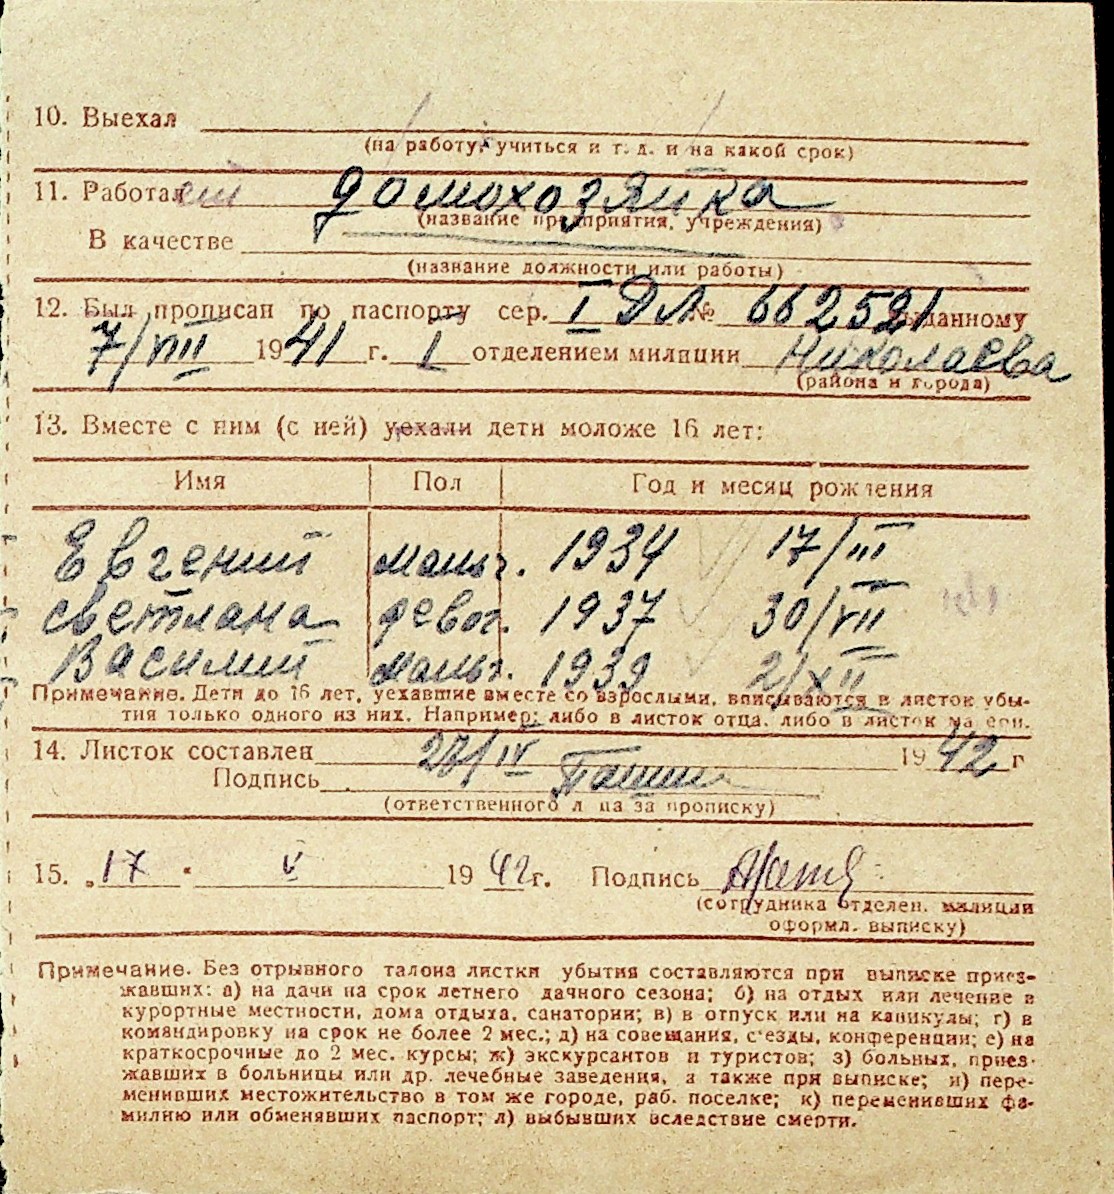 10. Выехал
(на работу, учиться и т. д. и на какой срок)
11. Работает домохозяйка
(название предприятия, учреждения)
В качестве
(название должности или работы)
12. Был прописан по паспорту сер. I ДЛ № 662521 выданному
7/VIII 1941 г. I отделением милиции Николаева
(района и города)
13. Вместе с ним (с ней) уехали дети моложе 16 лет:
Имя Пол Год и месяц рождения
Евгений мальч. 1934 17/III
Светлана девоч. 1937 30/VII
Василий мальч. 1939 2/XII
Примечание. Дети до 16 лет, уехавшие вместе со взрослыми, вписываются в листок убы-
тия только одного из них. Например: либо в листок отца, либо в листок матери.
14. Листок составлен 27/IV 1942 г
Подпись
(ответственного лица за прописку)
15. „17 " V 1942 г. Подпись
(сотрудника отделен. милиции
оформл. выписку)
Примечание. Без отрывного талона листки убытия составляются при выписке приез-
жавших: а) на дачи на срок летнего дачного сезона; б) на отдых или лечение в
курортные местности, дома отдыха, санатории; в) в отпуск или на каникулы; г) в
командировку на срок не более 2 мес.; д) на совещания, с'езды, конференции; е) на
краткосрочные до 2 мес. курсы; ж) экскурсантов и туристов; з) больных, приез-
жавших в больницы или др. лечебные заведения, а также при выписке; и) пере-
менивших местожительство в том же городе, раб. поселке; к) переменивших фа-
милию или обменявших паспорт; л) выбывших вследствие смерти.